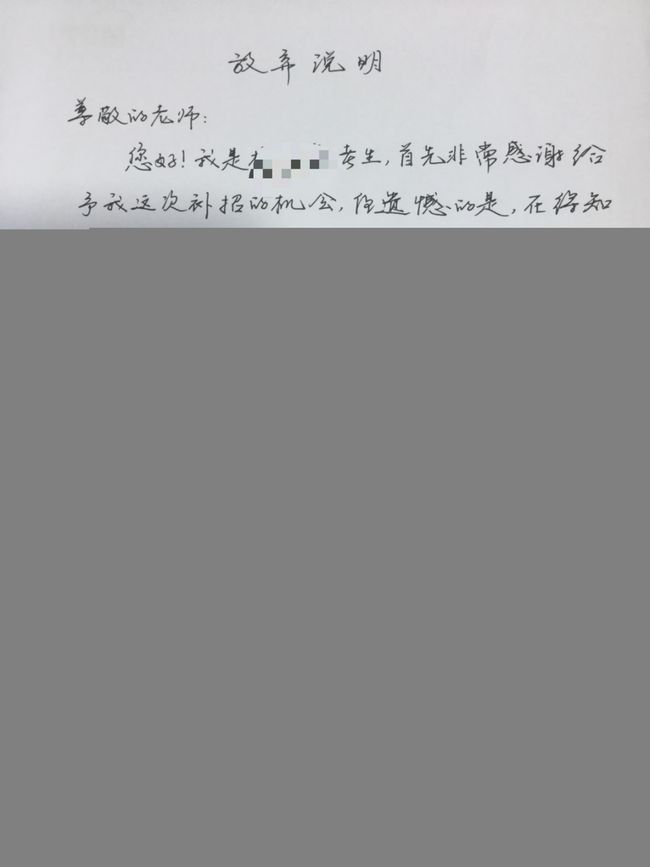 放弃说明
尊敬的老师:
您好!我是 考生,首先非常感谢给
予我这次补招的机会,但遗憾的是,在得知